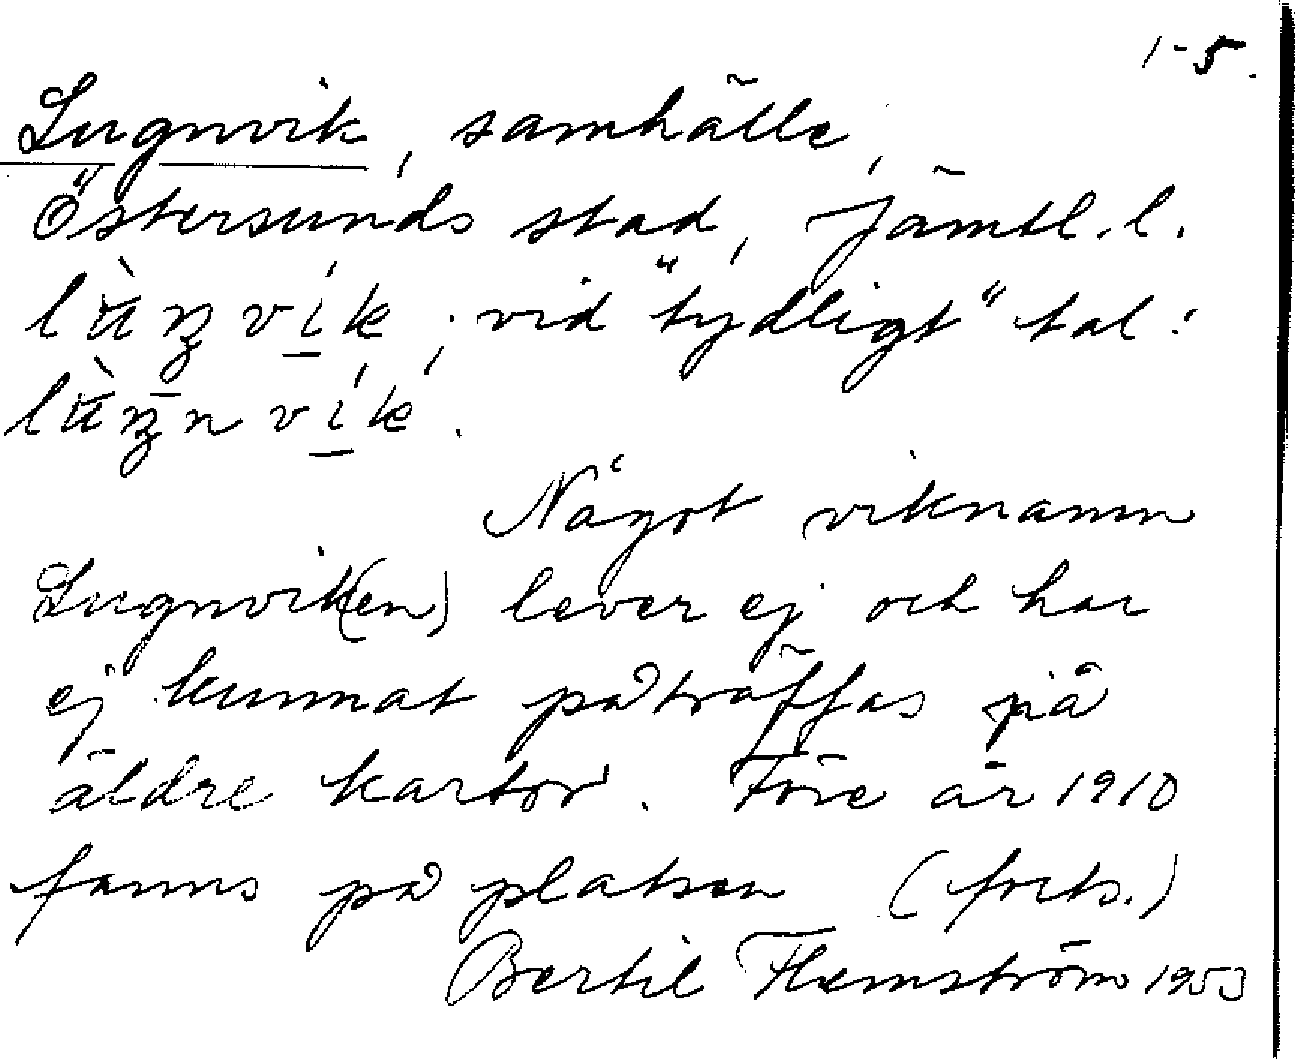 1-5.
Lugnvik, samhälle,
Östersunds stad, Jämtl. l.
lʉ̀ŋvík, vid "tydligt" tal:
lʉ̀ŋnvík.
Något viknamn
Lugnvik(en) lever ej och har
ej kunnat påträffas på
äldre kartor. Före år 1910
fanns på platsen (forts.)
Bertil Flemström 1953